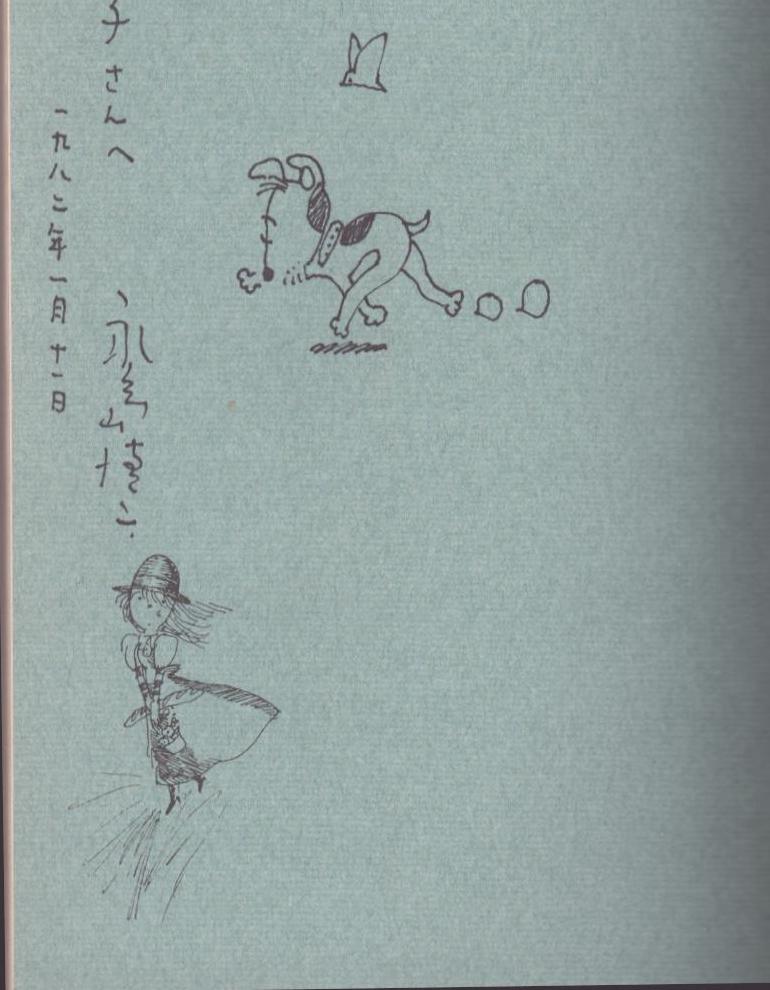 子さんへ
永島慎二
一九八二年一月十一日